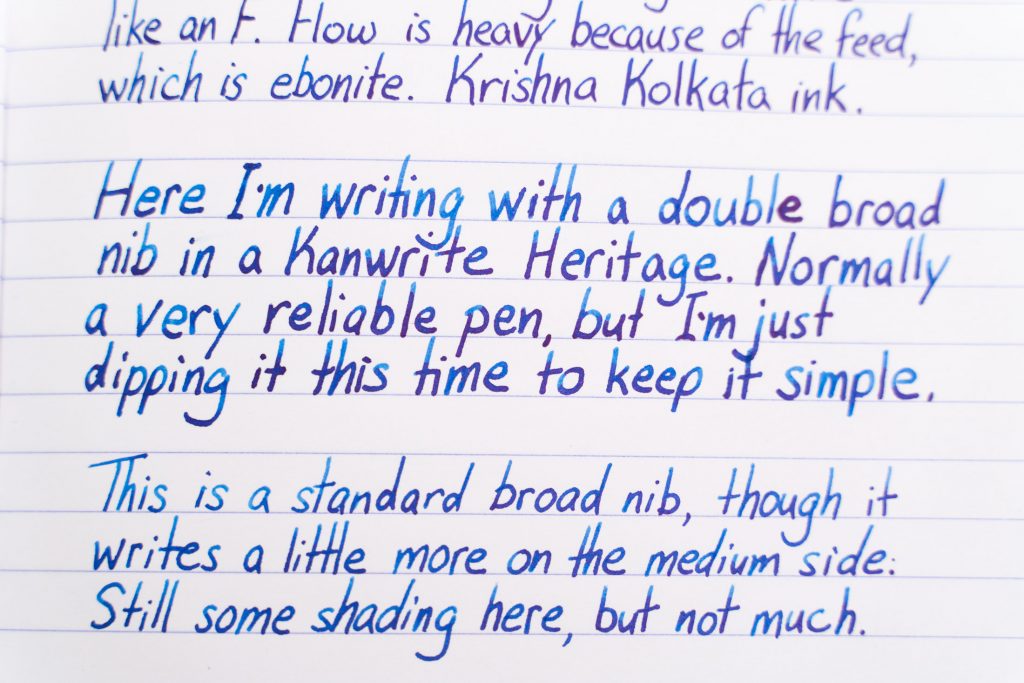 like an F. Flow is heavy because of the feed,
which is ebonite. Krishna Kolkata ink.
Here I'm writing with a double broad
nib in a Kanwrite Heritage. Normally
a very reliable pen, but I'm just
dipping it this time to keep it simple.
This is a standard broad nib, though it
writes a little more on the medium side.
Still some shading here, but not much.